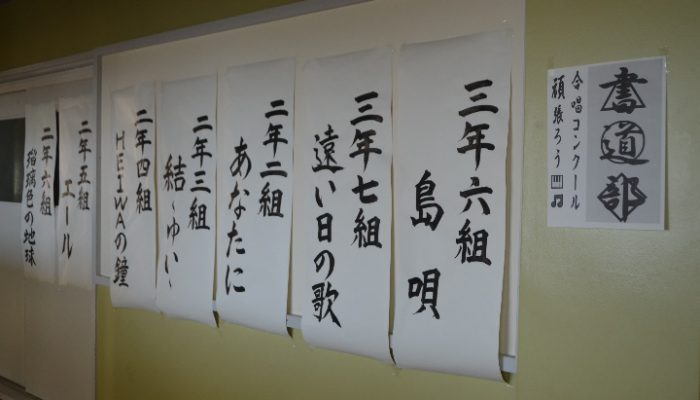 書道部
合唱コンクール
頑張ろう
三年六組
島唄
三年七組
遠い日の歌
二年二組
あなたに
二年三組
結〜ゆい〜
二年四組
HEIWAの鐘
二年五組
エール
二年六組
瑠璃色の地球